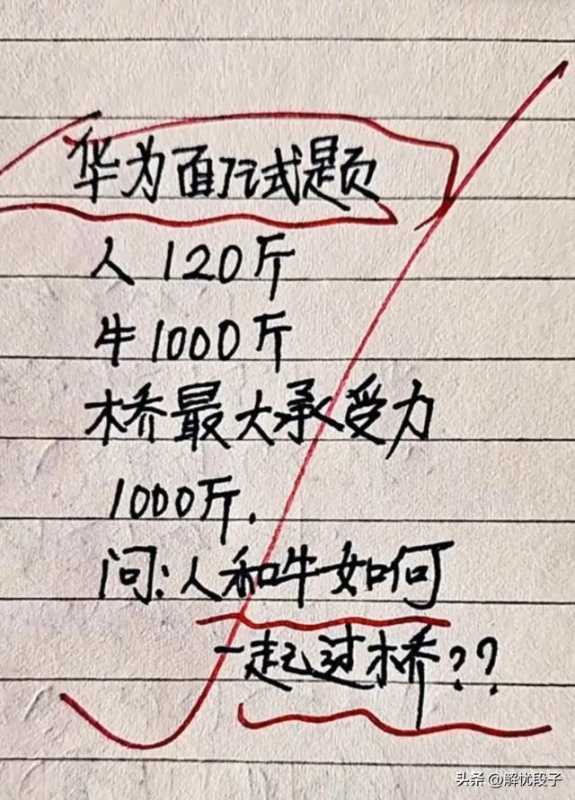 华为面试题
人120斤
牛1000斤
桥最大承受力
1000斤.
问:人和牛如何
一起过桥??
头条 @解忧段子